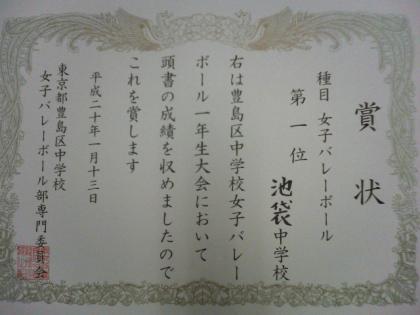 賞状
種目 女子バレーボール
第一位 池袋中学校
右は豊島区中学校女子バレー
ボール一年生大会において
頭書の成績を収めましたので
これを賞します
平成二十年一月十三日
東京都豊島区中学校
女子バレーボール部専門委員会